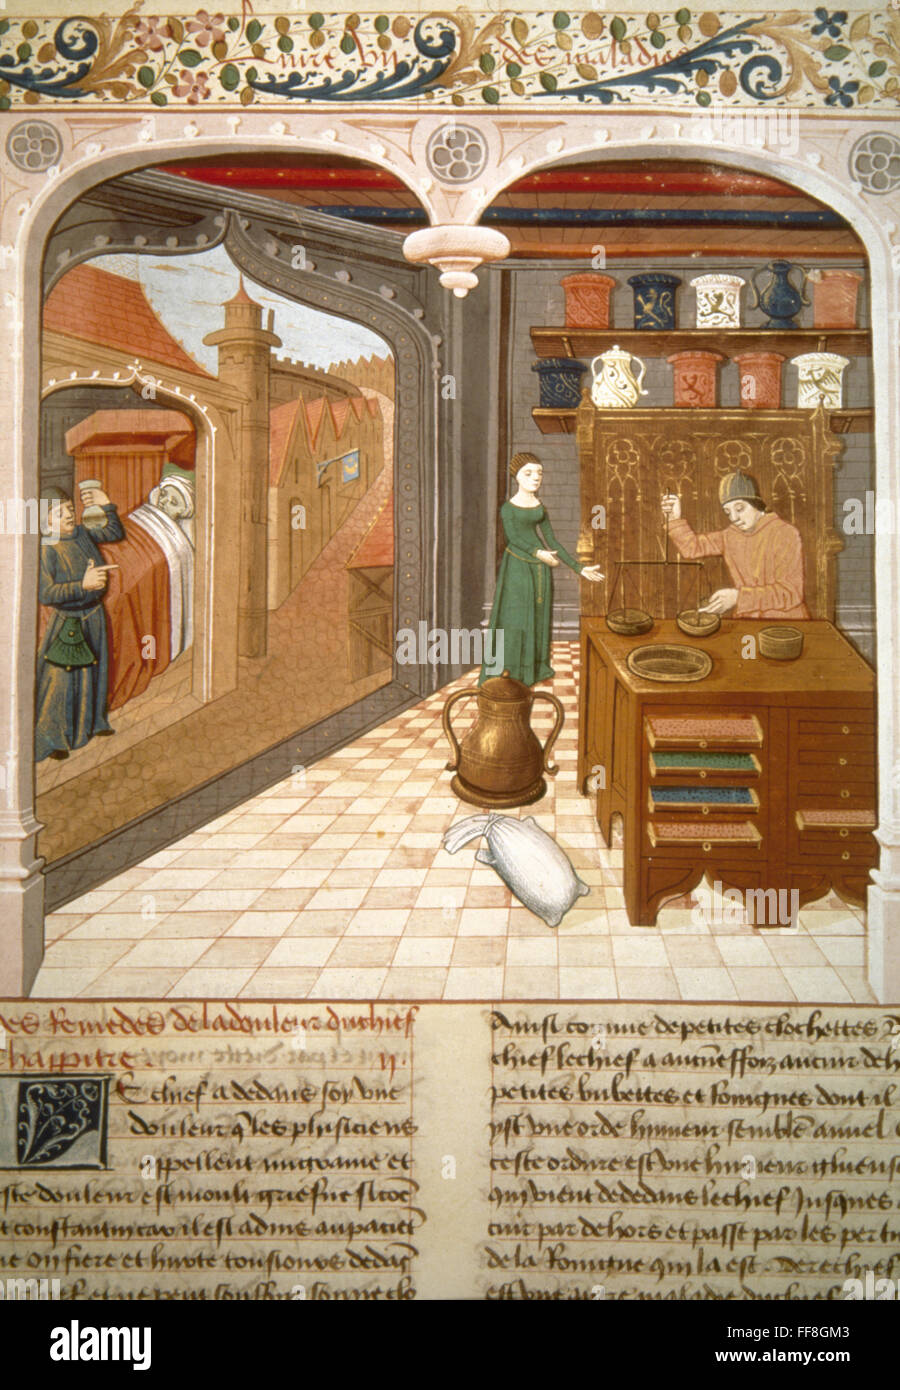 Liure vii des maladies
des Remedes de la douleur du chief
Chappitre ii
E chief a dedans soy vne
douleur q̄ les phisiciens
appellent migraine et
este douleur est moult griefue si cōe
t constantin car il est aduis au paciēt
ue on fiere et hurte tousiours dedās
chief et ne peut
Ainsi comme de petites clochettes D
chief le chief a aucuneffoiz aucur de h
petites bubettes et Romignes dont il
yst vne orde humeur semblēt a miel
ceste ordure est vne humeur glueus
qui vient de dedans le chief Jusques a
cuir par dehors et passe par les pertu
de la Romigne qui la est. Derechief
est vne autre maladie du chief
alamy
Image ID: FF8GM3
www.alamy.com